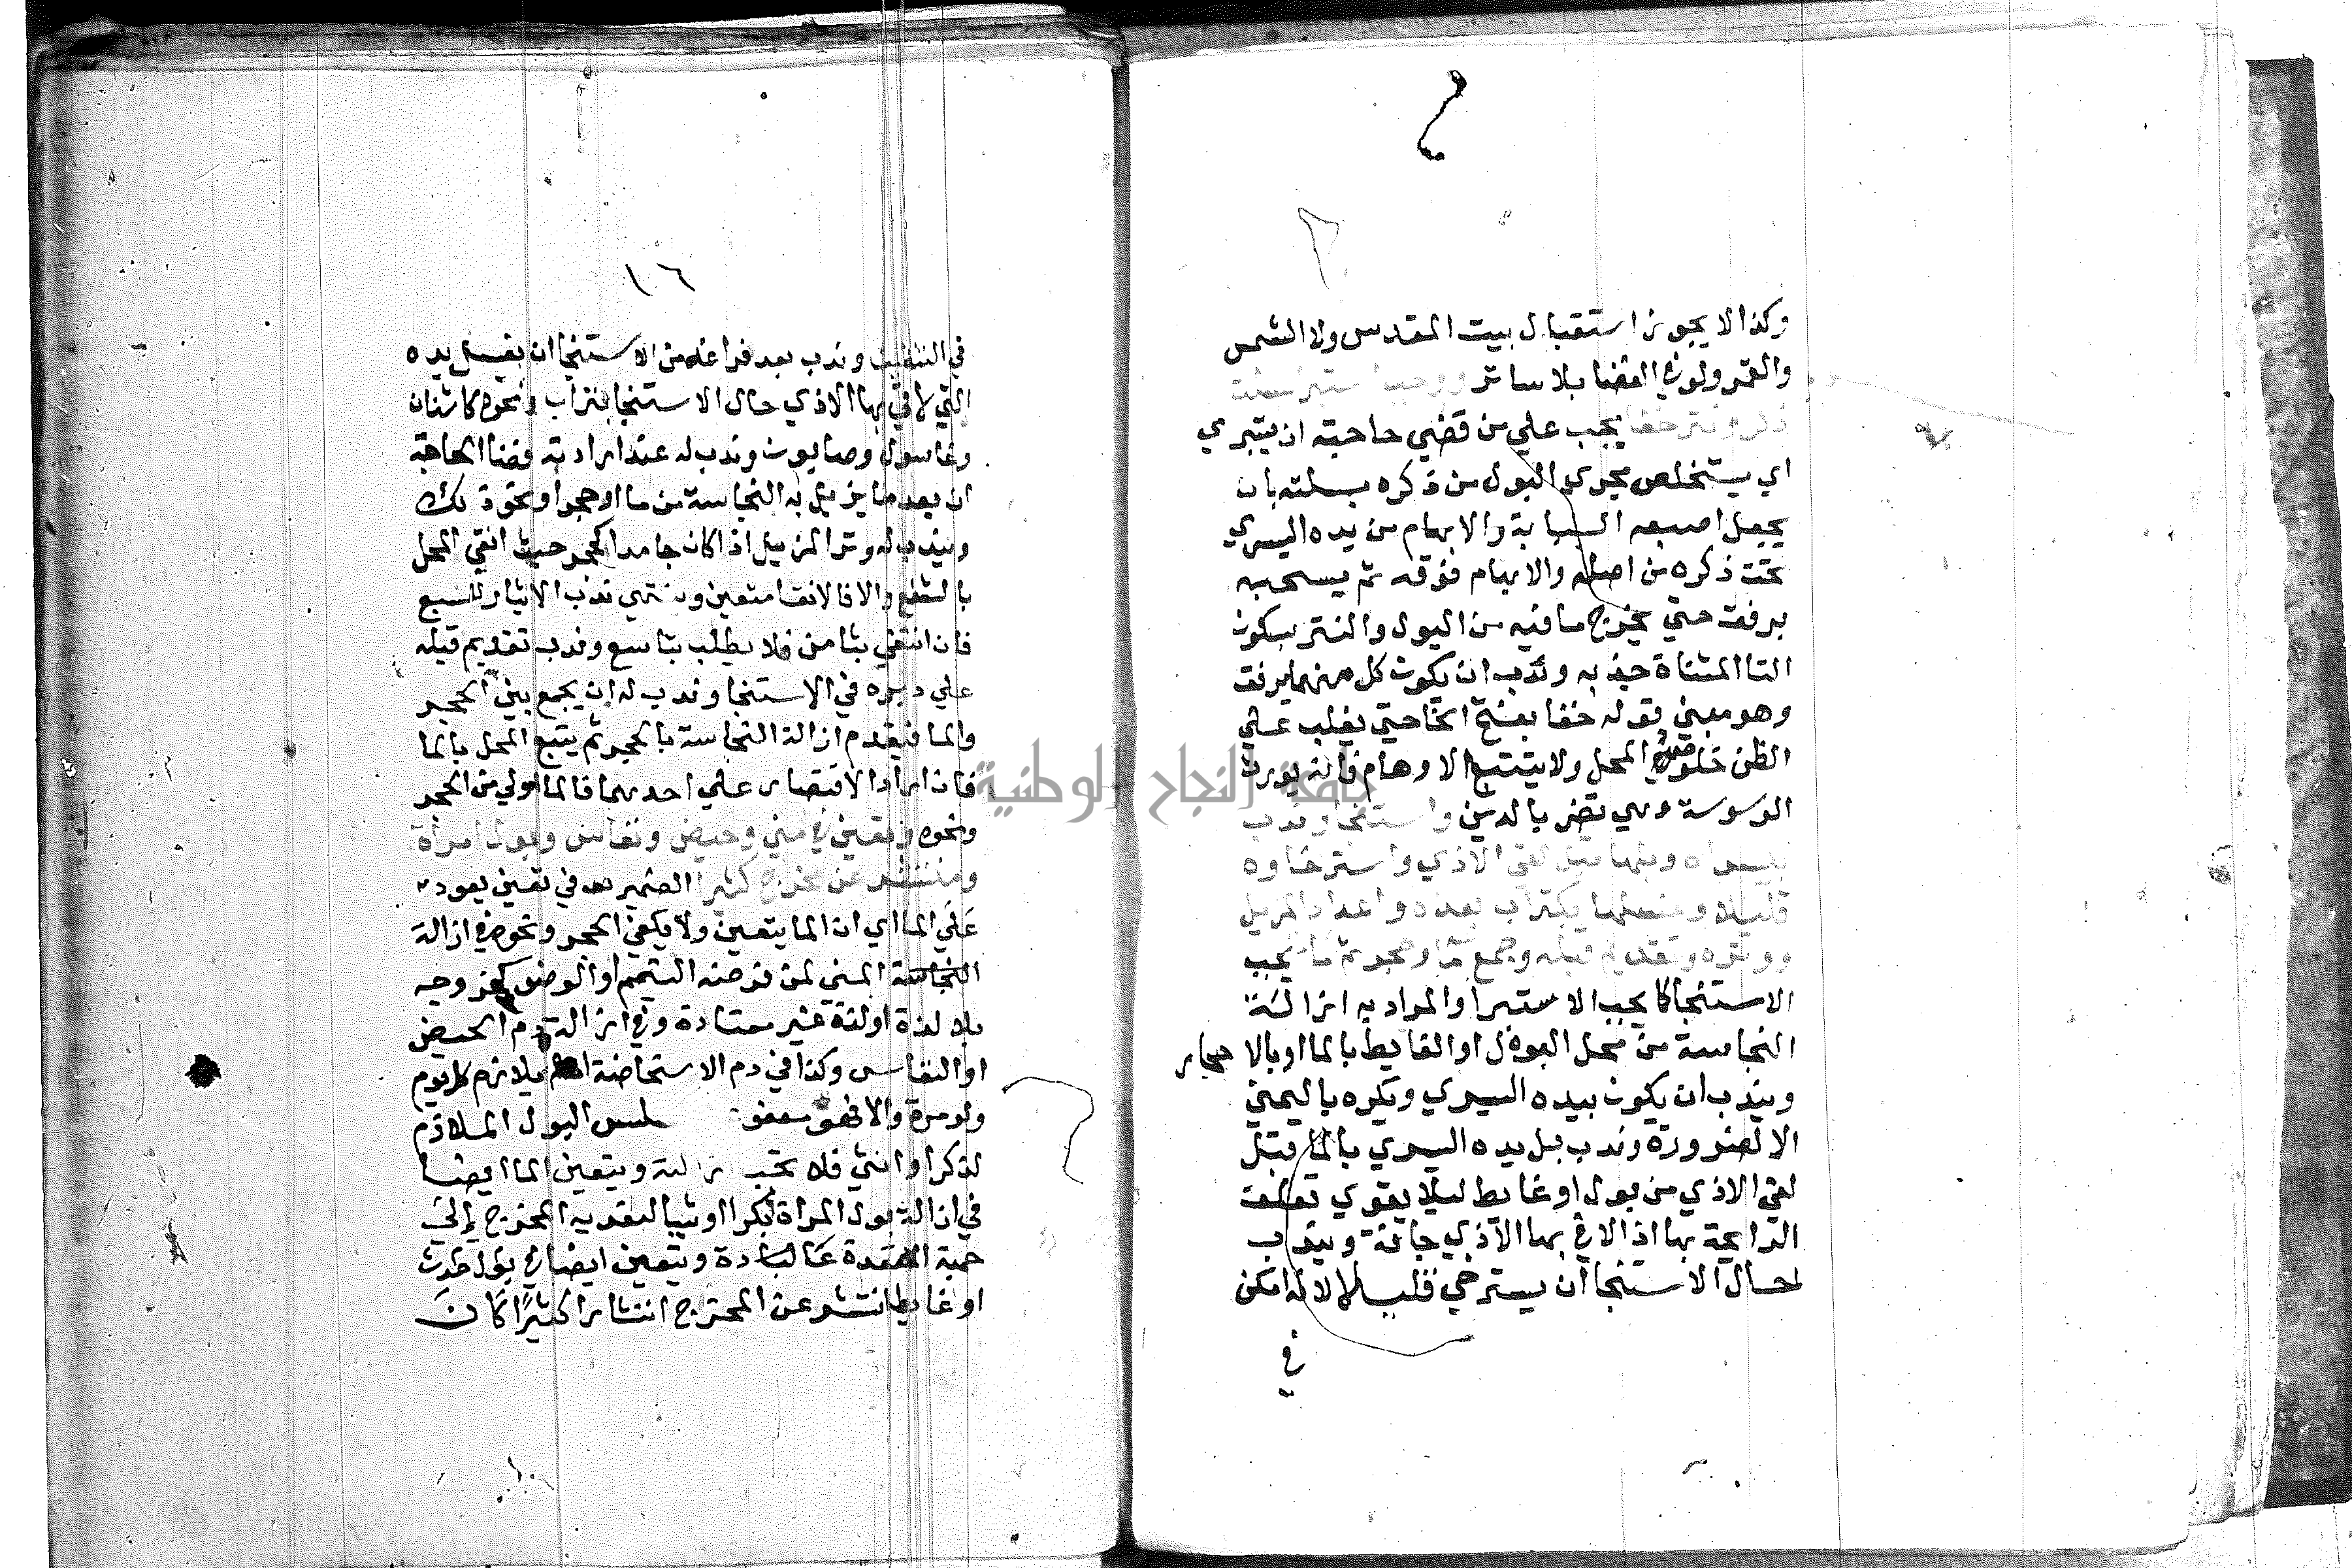 وكذا لا يجوز استقبال بيت المقدس ولا الشمس
والقمر ولو في الفضا بلا ساتر ووجب استبرا بسلت
ذكر ونتر خفا يجب علي من قضي حاجته ان يتبري
اي يستخلص مجري البول من ذكره بسلته بان
يجعل اصبعه السبابة والابهام من يده اليسري
تحت ذكره من اصله والابهام فوقه ثم يسحبه
برفق حتي يخرج ما فيه من البول والنتر بسكون
التا المثناة جذبه وندب ان يكون كل منهما برفق
وهو معني قوله خفا بفتح الخا حتي يغلب علي
الظن خلوص المحل ولا يتتبع الاوهام فانه يورث
الوسوسة وهي تضر بالدين واستنجا وندب
بيسراه وبلها قبل لقي الاذي واسترخاوه
قليلا وغسلها بكتراب بعده واعداد المزيل
ووتره وتقديم قبله وجمع ما وحجر ثم ما يجب
الاستنجا كما يجب الاستبرا والمراد به ازالة
النجاسة من محل البول او الغايط بالما او بالاحجار
ويندب ان يكون بيده اليسري ويكره باليمني
الا لضرورة وندب بل يده اليسري بالما قبل
لقي الاذي من بول او غايط ليلا يقوي تعلق
الرايحة بها اذا لاقي بها الاذي جافة ويندب
لحال الاستنجا ان يسترخي قليلا لانه امكن
في
١٠٦
في التنظيف وندب بعد فراغه من الاستنجا ان يغسل يده
التي لاقي بها الاذي حال الاستنجا بتراب ونحوه كاشنان
وغاسول وصابون وندب له عند ارادته قضا الحاجة
ان يعد ما يزيل به النجاسة من ما او حجر او نحو ذلك
ويندب له وتر المزيل اذا كان جامدا كحجر حيث انقي المحل
بالشفع والا فالانقا متعين وينتهي ندب الايتار للسبع
فان انتقي بثامن فلا يطلب بتاسع وندب تقديم قبله
علي دبره في الاستنجا وندب له ان يجمع بين الحجر
والما فيقدم ازالة النجاسة بالحجر ثم يتبع المحل بالما
فان اراد الاقتصار علي احدهما فالما اولي من الحجر
ونحوه وتعين في مني وحيض ونفاس وبول امراة
ومنتشر عن مخرج كثيرا الضمير في تعين يعود
علي الما اي ان الما يتعين ولا يكفي الحجر ونحوه في ازالة
النجاسة المني لمن فرضه التيمم او الوضو كخروجه
بلا لذة او لذة غير معتادة وفي ازالة دم الحيض
او النفاس وكذا في دم الاستحاضة يلازم كل يوم
ولو مرة والا فهو معفو كسلس البول الملازم
لذكر او انثي فلا تجب ازالته ويتعين الما ايضا
في ازالة بول المراة بكرا او ثيبا لتعديه المخرج الي
جهة المقعدة عالبا دة ويتعين ايضا في بول حدث
او غايط انتشر عن المخرج انتشارا كثيرا كان
جامعة النجاح الوطنية